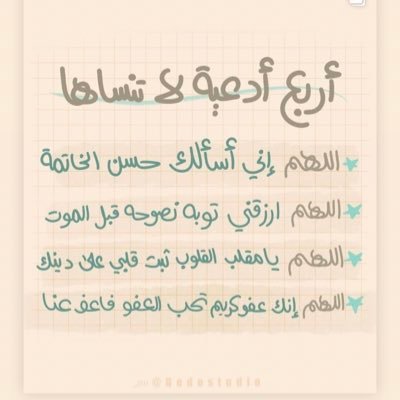 أربع أدعية لا تنساها
اللهم إني أسألك حسن الخاتمة
اللهم ارزقني توبه نصوحه قبل الموت
اللهم يا مقلب القلوب ثبت قلبي على دينك
اللهم إنك عفو كريم تحب العفو فاعف عنا
@Dodostudio